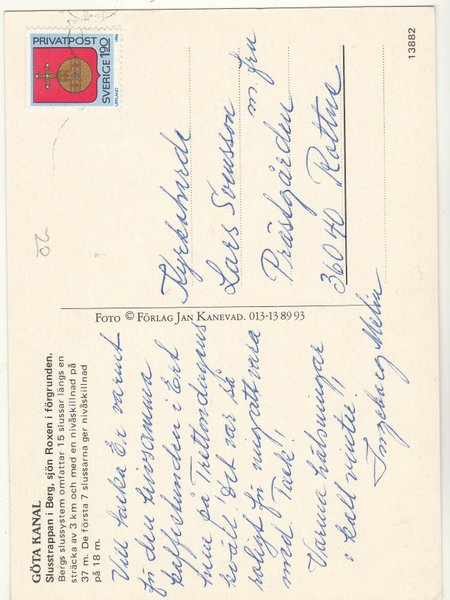 GÖTA KANAL
Slusstrappan i Berg, sjön Roxen i förgrunden.
Bergs slussystem omfattar 15 slussar längs en
sträcka av 3 km och med en nivåskillnad på
37 m. De första 7 slussarna ger nivåskillnad
på 18 m.
Vill tacka Er varmt
för den trivsamma
kaffestunden i Ert
hem på Trettondagens
kväll! Det var så
roligt för mig att vara
med. Tack!
Varma hälsningar
i kall vinter!
Ingeborg Melin
FOTO © FÖRLAG JAN KANEVAD. 013-13 89 93
PRIVATPOST
SVERIGE 190
UPPLAND
1986
Kyrkoherde
Lars Svensson
m. fru
Prästgården
360 40 Rottne
13882